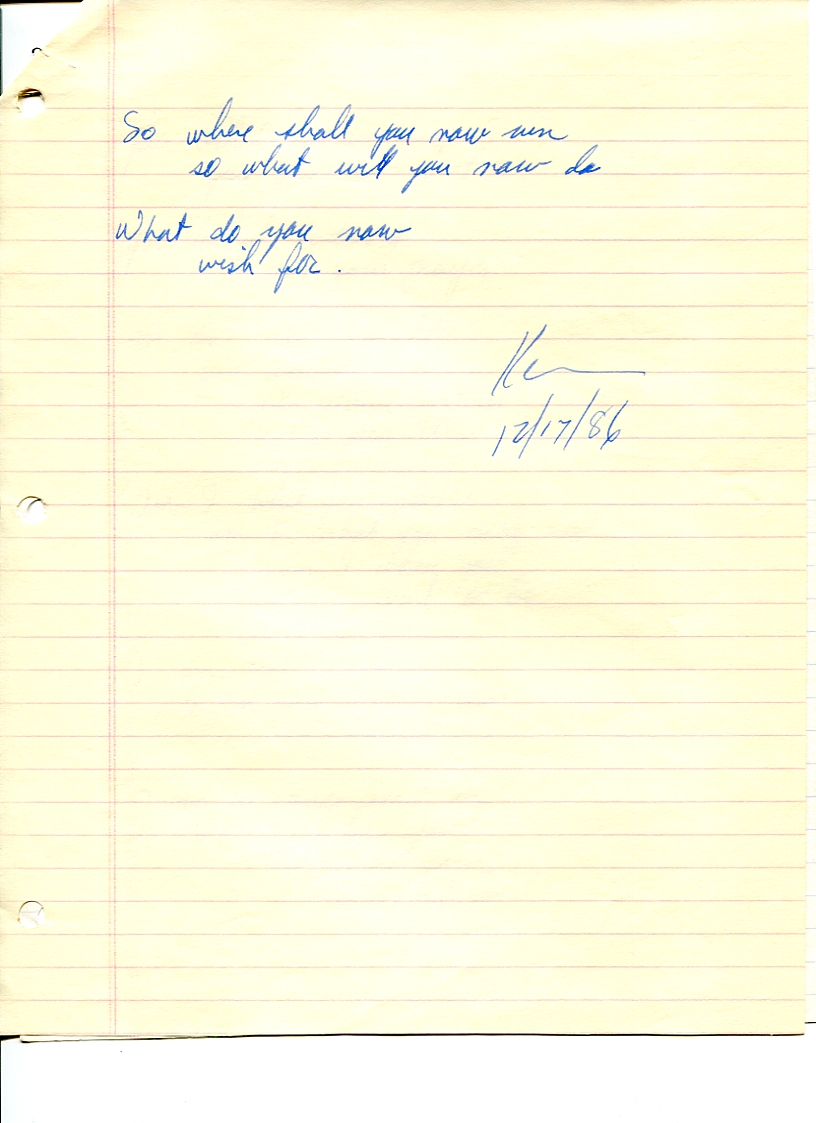 So where shall you now run
so what will you now do
What do you now
wish for.
12/17/86